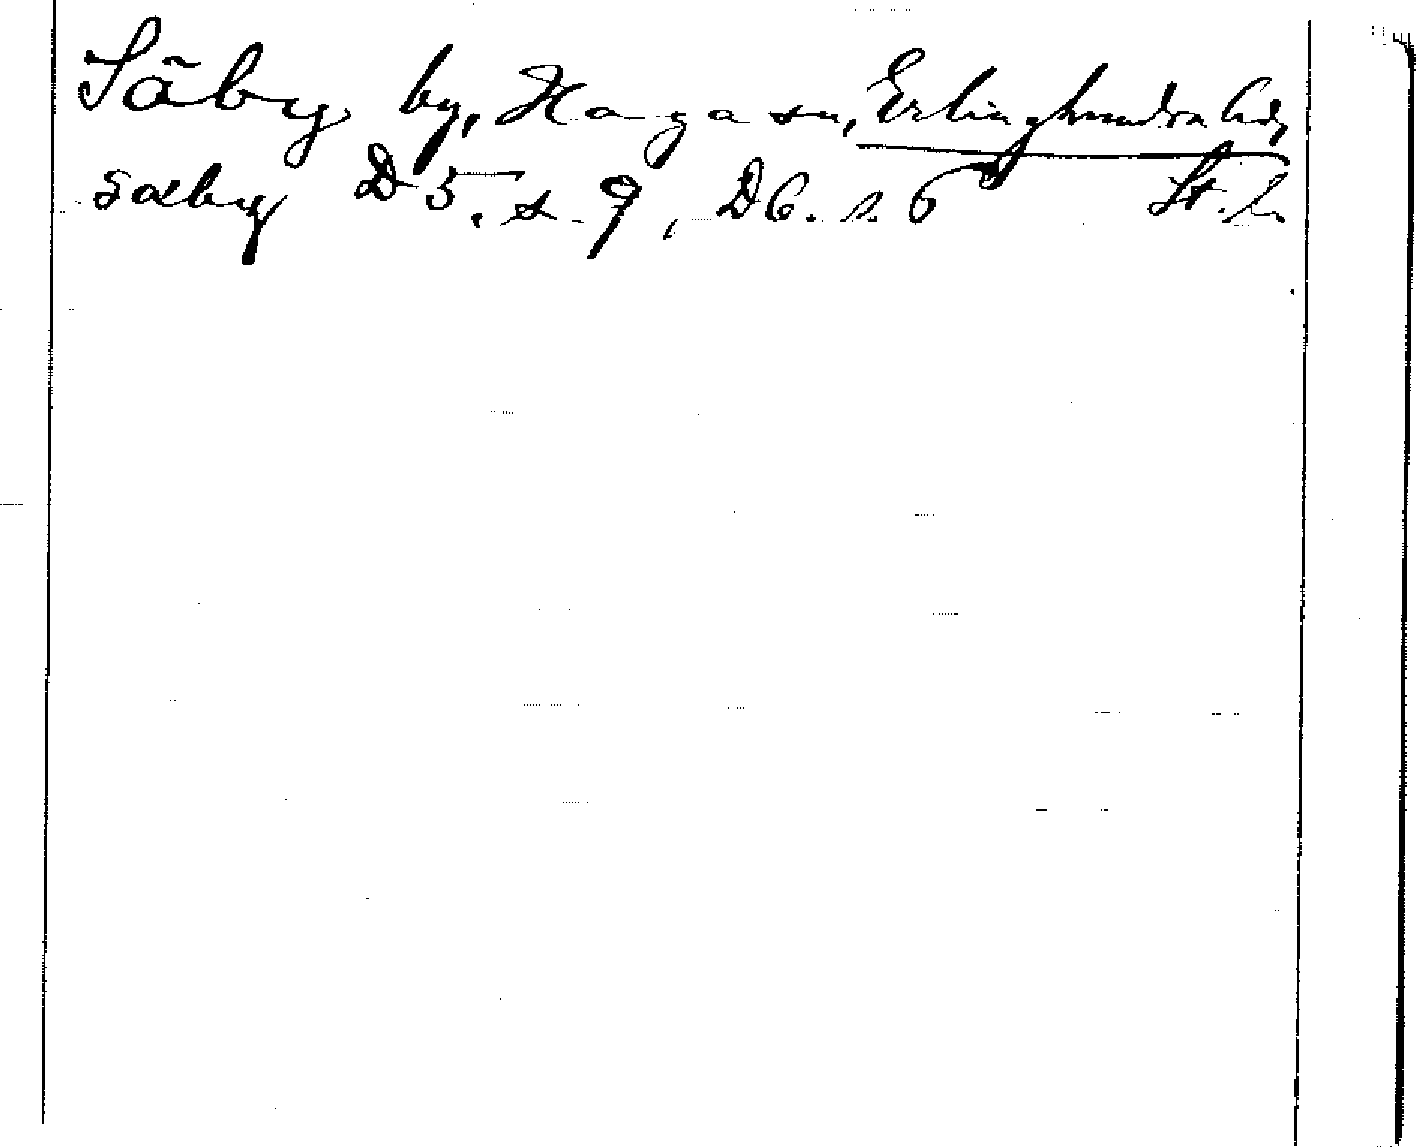 Säby by, Haga sn, Erlinghundra hd,
sæby D 5. s. 9, D 6. s. 6 St. l.